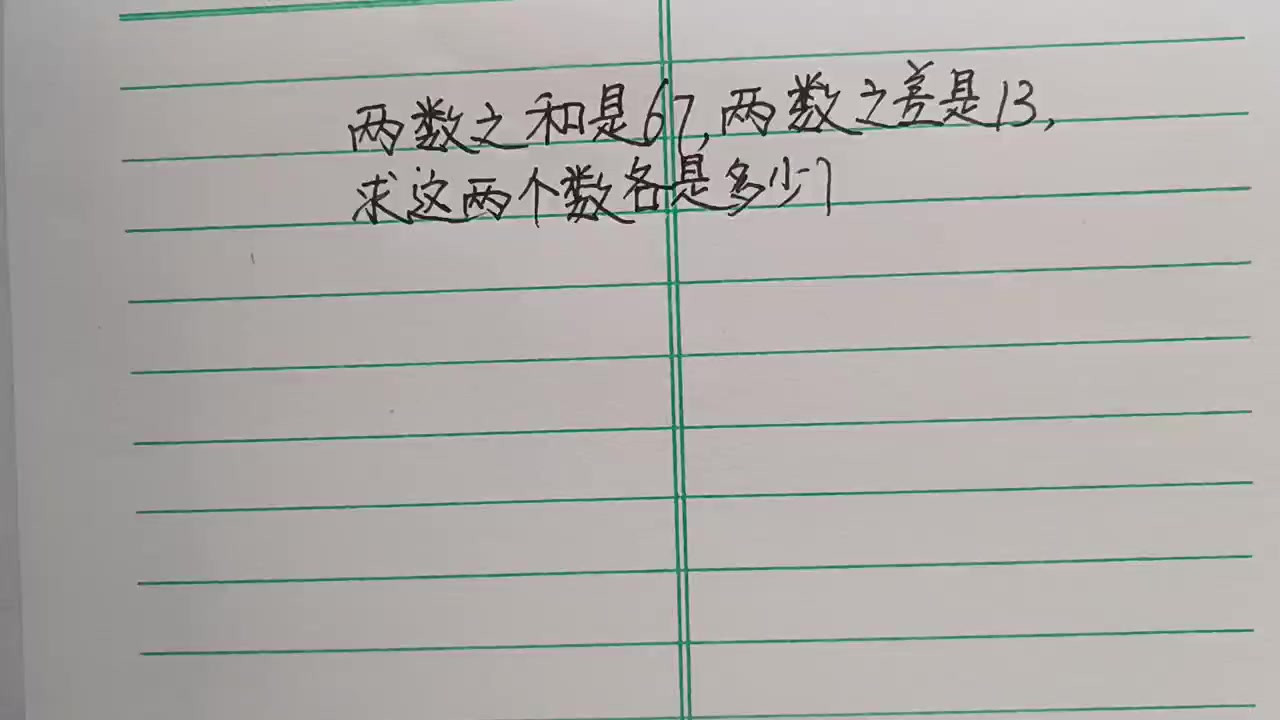 两数之和是67,两数之差是13,
求这两个数各是多少?